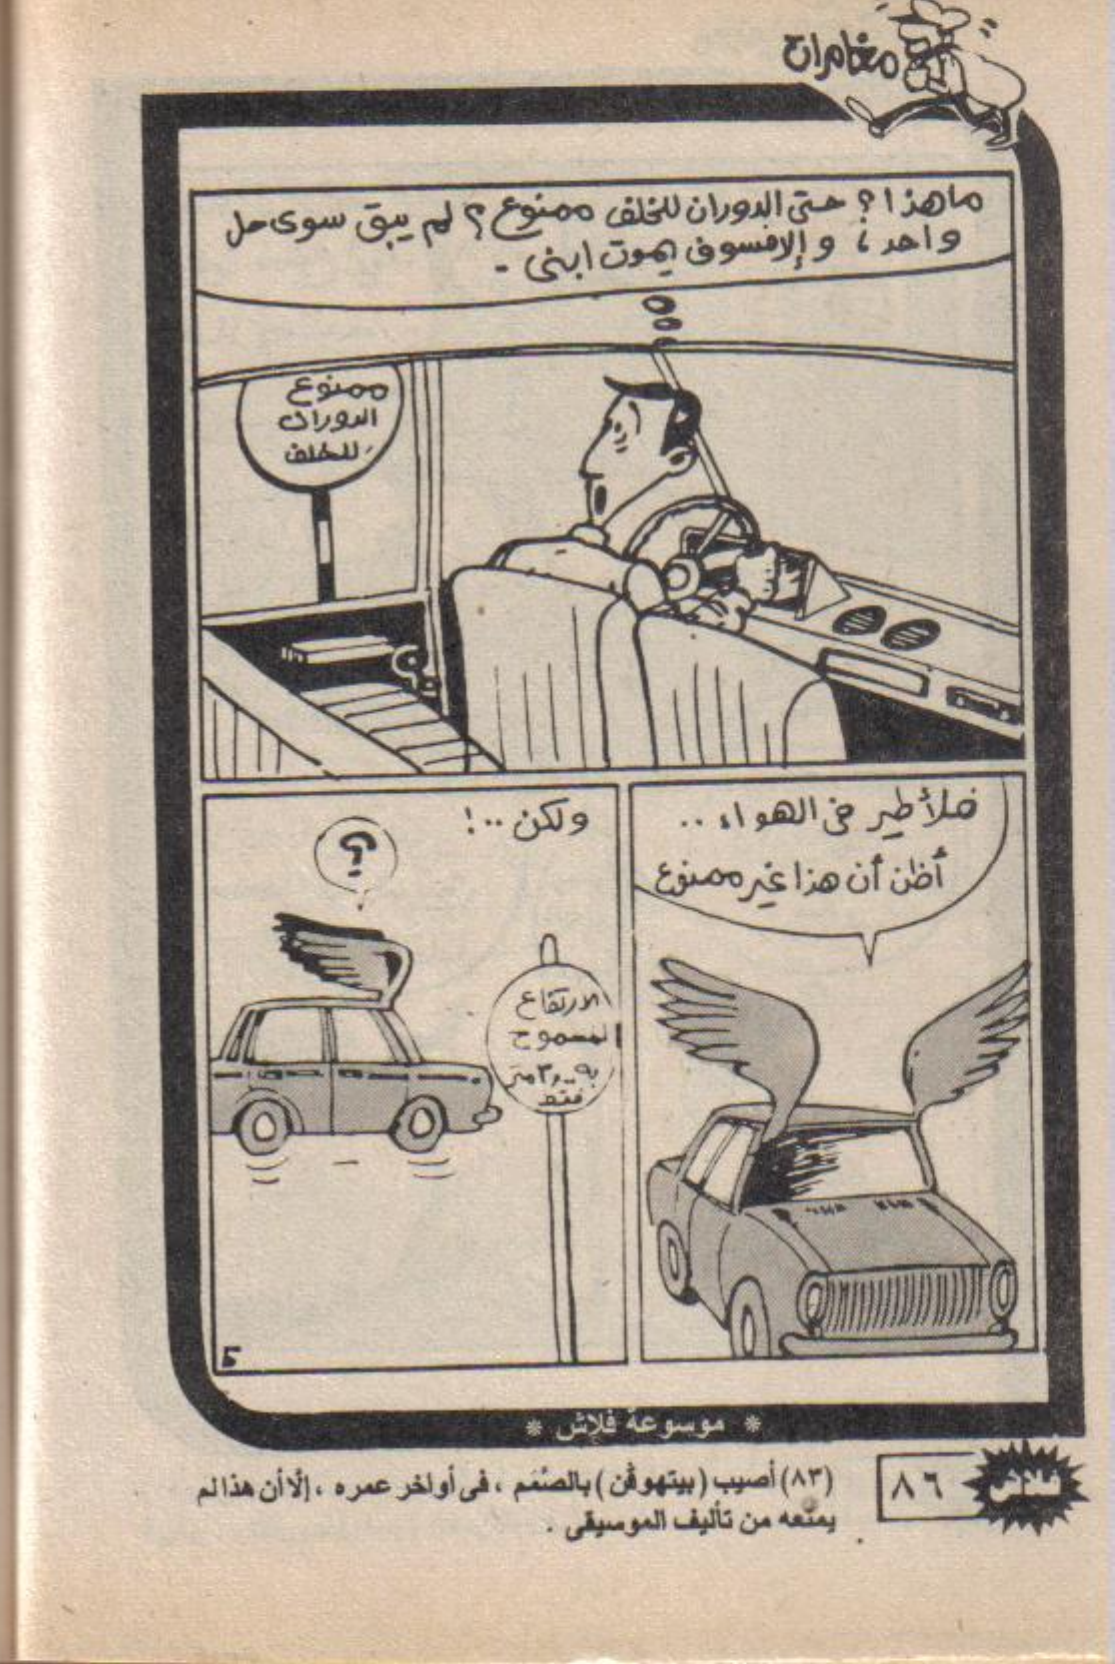 مغامرات
ما هذا؟ حتى الدوران للخلف ممنوع؟ لم يبق سوى حل
واحد، وإلا فسوف يموت ابنى -
ممنوع
الدوران
للخلف
فلأطير فى الهواء..
أظن أن هذا غير ممنوع
ولكن..!
؟
الارتفاع
المسموح
به ٣٠٠ متر
فقط
5
* موسوعة فلاش *
٨٦
فلاش
(٨٣) أصيب (بيتهوڤن) بالصَّمَم ، فى أواخر عمره ، إلَّا أن هذا لم
يمنعه من تأليف الموسيقى .